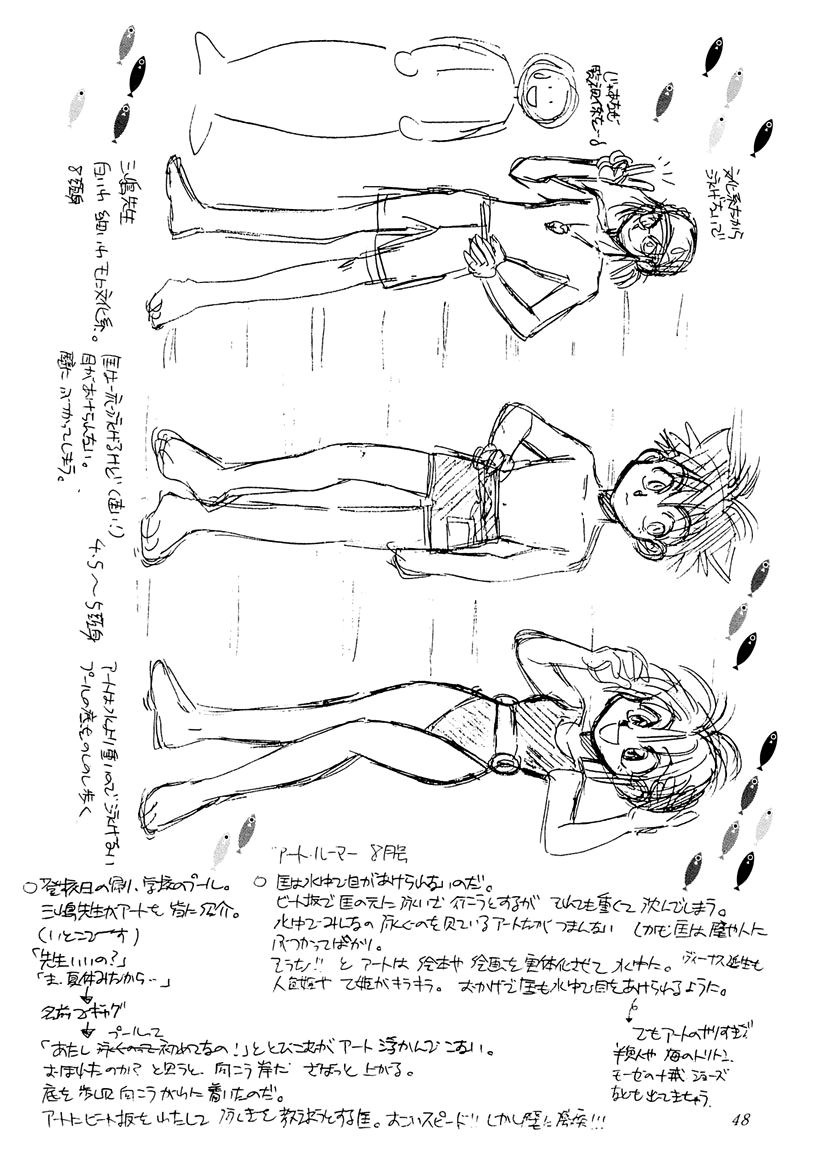 じゃあなぜ
監視係を…
文化系だから
泳げないで
三嶋先生
白い 細い モト文化系。
8頭身
匡は一応泳げるけど(速い!)
目があけられない。
壁にぶつかってしまう。
4.5〜5頭身
アートは水より重いので泳げない
プールの底をのしのし歩く
アート・ルーマー 8月号
○登校日の帰り、学校のプール。
三嶋先生がアートを皆に紹介。
(いとこでーす)
「先生いいの?」
「ま、夏休みだから…」
名前でギャグ
プールって
「あたし 泳ぐのって初めてなの!」ととびこむが アート 浮かんで こない。
おぼれたのか?と思うと 向こう岸に ざばっと 上がる。
底を歩いて 向こうがわに 着いたのだ。
アートにビート板を わたして 泳ぎを教えようとする匡。すごいスピード!! しかし壁に激突!!!
○ 匡は水中で目があけられないのだ。
ビート板で 匡の元に 泳いで 行こうとするが とても重くて 沈んでしまう。
水中でみんなの 泳ぐのを見ているアートだがつまんない しかも匡は壁や人に
ぶつかってばかり。
そうだ!! と アートは 絵本や 絵画を実体化させて 水中に。 ヴィーナス誕生も
人魚姫や 乙姫がキラキラ。 おかげで匡も水中で目をあけられるように。
でもアートのやりすぎで
半魚人や 海のトリトン、
モーゼの十戒 ジョーズ
なども出てきちゃう。
48